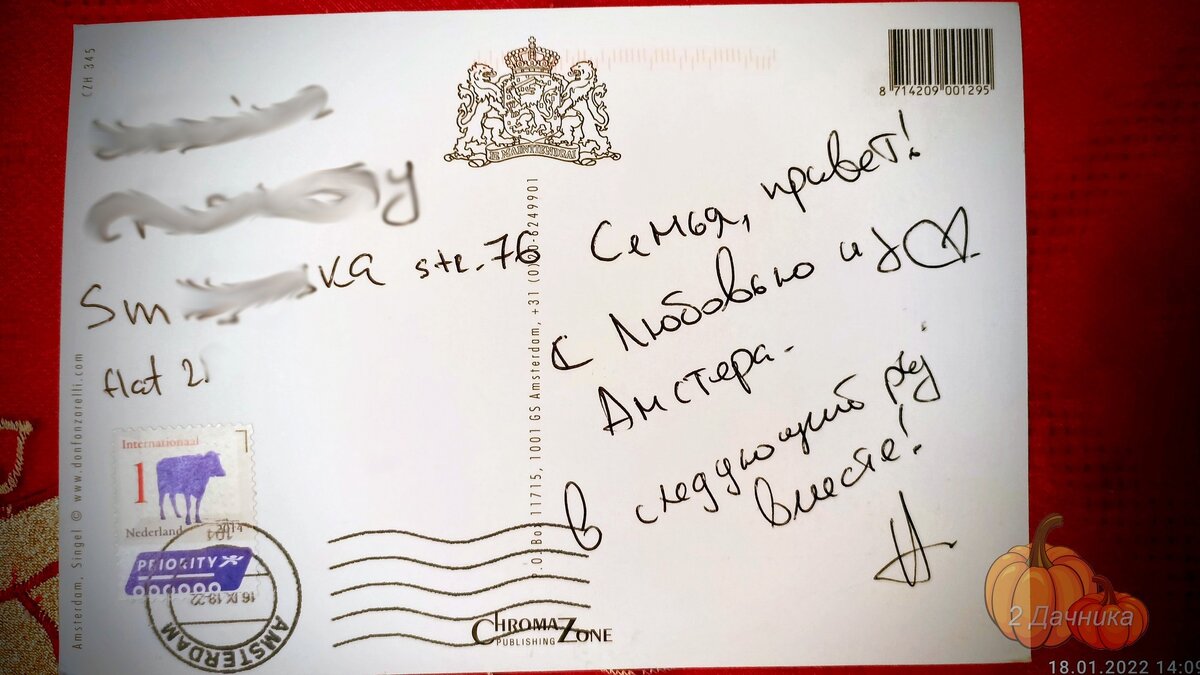 CZH 345
JE MAINTIENDRAI
8 714209 001295
Sm ska str. 76
flat 2
Семья, привет!
С Любовью и з
Амстера.
В следующий
вместе!
Internationaal
1
Nederland 2014
PRIORITY
16 IX
AMSTERDAM
Amsterdam, Singel © www.donfonzorelli.com
P.O. Box 11715, 1001 GS Amsterdam, +31 (0)20-6249901
CHROMAZONE
PUBLISHING
2 Дачника
18.01.2022 14:09